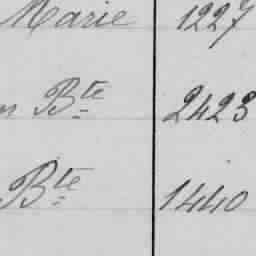 Marie 1227
Bte 2423
Bte 1440